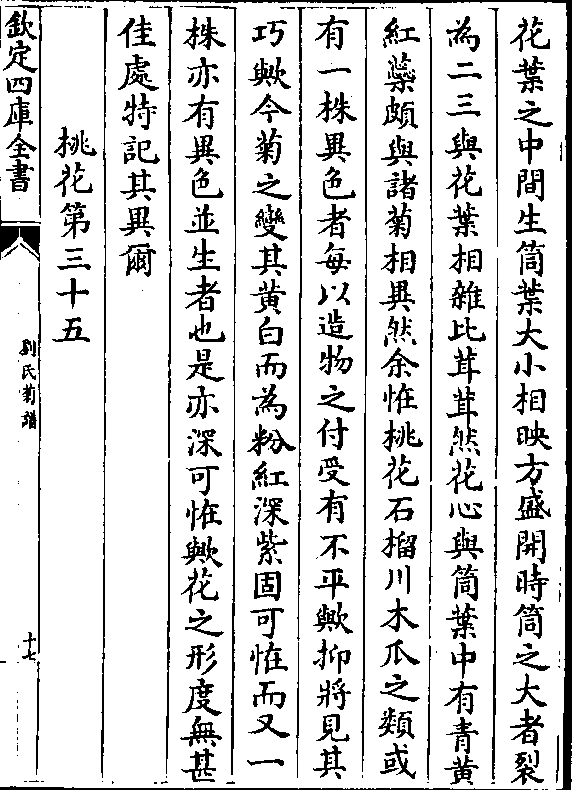 花葉之中間生筒葉大小相映方盛開時筒之大者裂
為二三與花葉相雜比茸茸然花心與筒葉中有青黄
紅蘂頗與諸菊相異然余恠桃花石榴川木瓜之類或
有一株異色者每以造物之付受有不平歟抑將見其
巧歟今菊之變其黄白而為粉紅深紫固可恠而又一
株亦有異色並生者也是亦深可恠歟花之形度無甚
佳處特記其異爾
桃花第三十五
欽定四庫全書
劉氏菊譜
十七